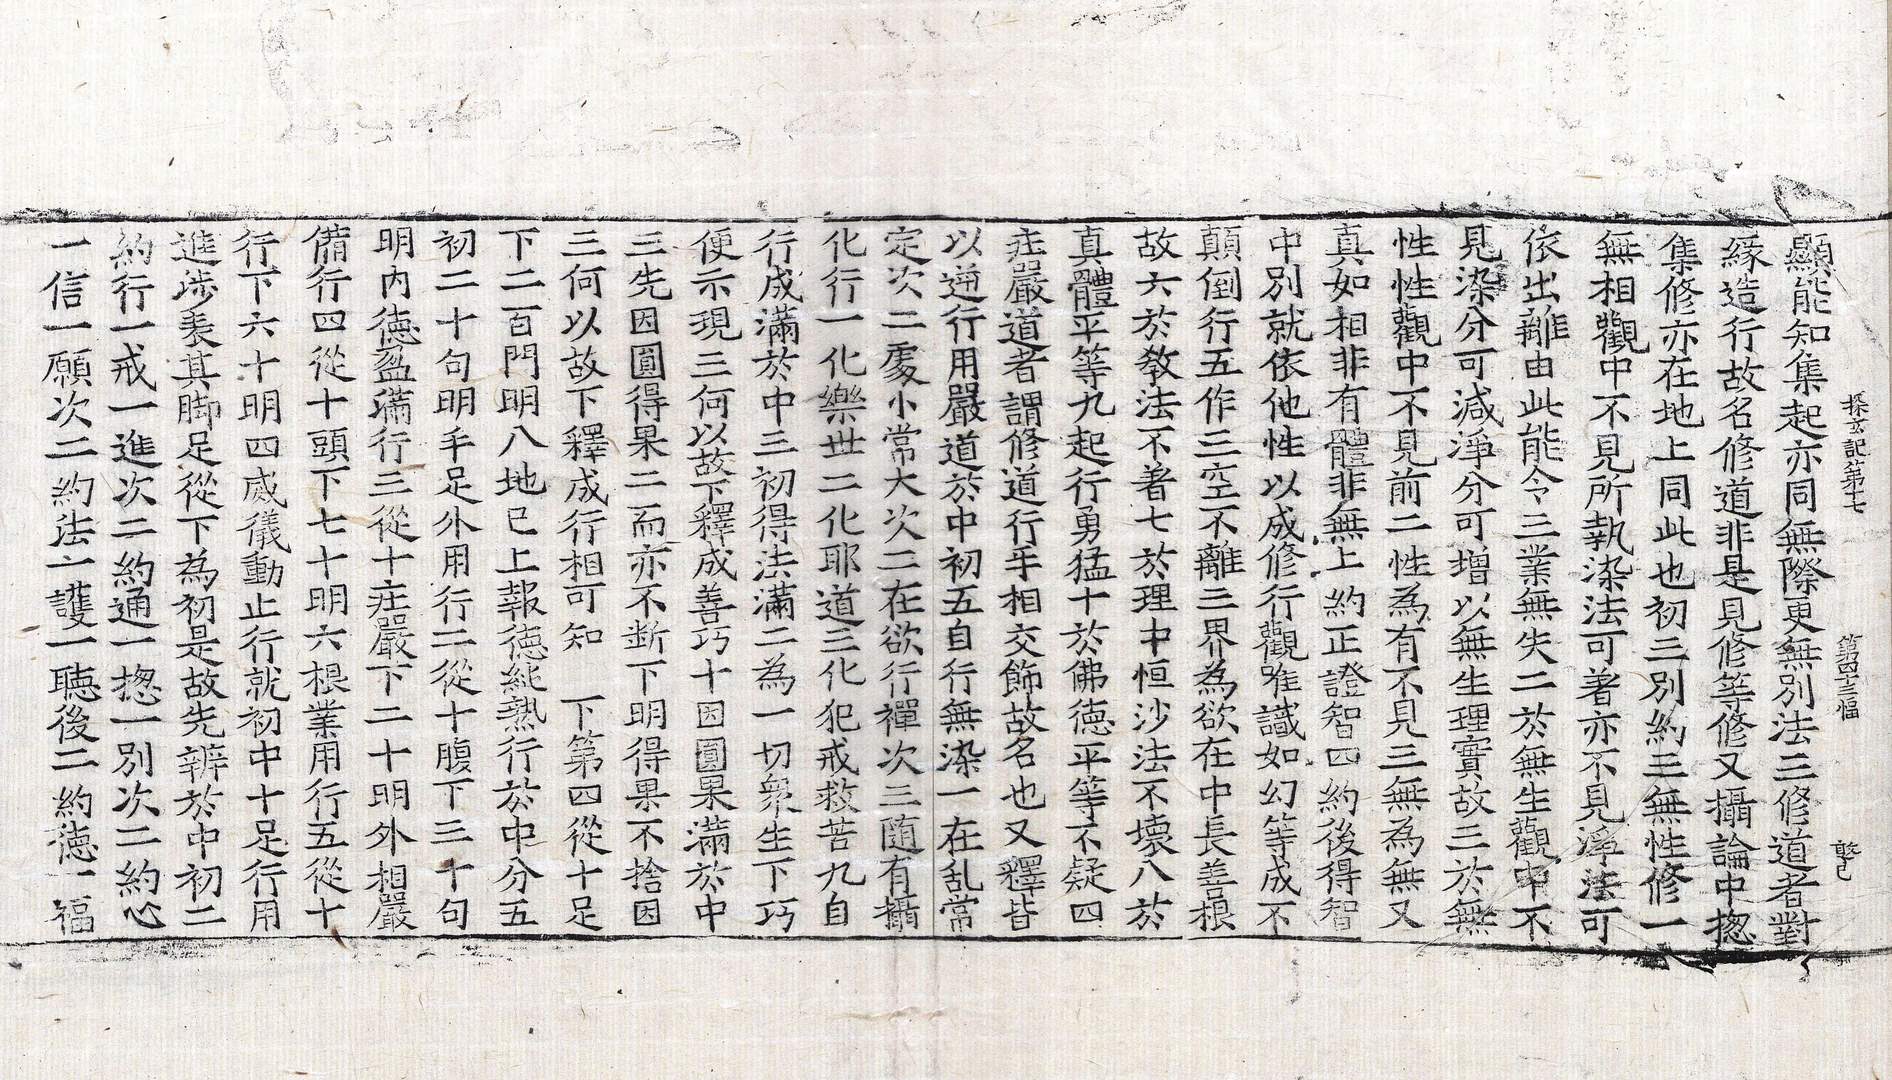 探玄記第十七　第四十三幅
顯能知集起亦同無際更無別法三修道者對
緣造行故名修道非是見修等修又攝論中揔
集修亦在地上同此也初三別約三無性修一
無相觀中不見所執染法可著亦不見淨法可
依出離由此能令三業無失二於無生觀中不
見染分可減淨分可增以無生理實故三於無
性性觀中不見前二性為有不見三無為無又
真如相非有體非無上約正證智四約後得智
中別就依他性以成修行觀唯識如幻等成不
顛倒行五作三空不離三界為欲在中長善根
故六於教法不著七於理中恒沙法不壞八於
真體平等九起行勇猛十於佛德平等不疑四
庄嚴道者謂修道行手相交飾故名也又釋皆
以通行用嚴道於中初五自行無染一在乱常
定次二處小常大次二在欲行禪次三随有攝
化行一化樂世二化耶道三化犯戒救苦九自
行成滿於中三初得法滿二為一切衆生下巧
便示現三何以故下釋成善巧十因圓果滿於中
三先因圓得果二而亦不斷下明得果不捨因
三何以故下釋成行相可知　下第四從十足
下二百門明八地已上報德純熟行於中分五
初二十句明手足外用行二從十腹下三十句
明內德盈滿行三從十庄嚴下二十明外相嚴
備行四從十頭下七十明六根業用行五從十
行下六十明四威儀動止行就初中十足行用
進涉表其脚足從下為初是故先辨於中初二
約行一戒一進次二約通一揔一別次二約心
一信一願次二約法一護一聽後二約德一福